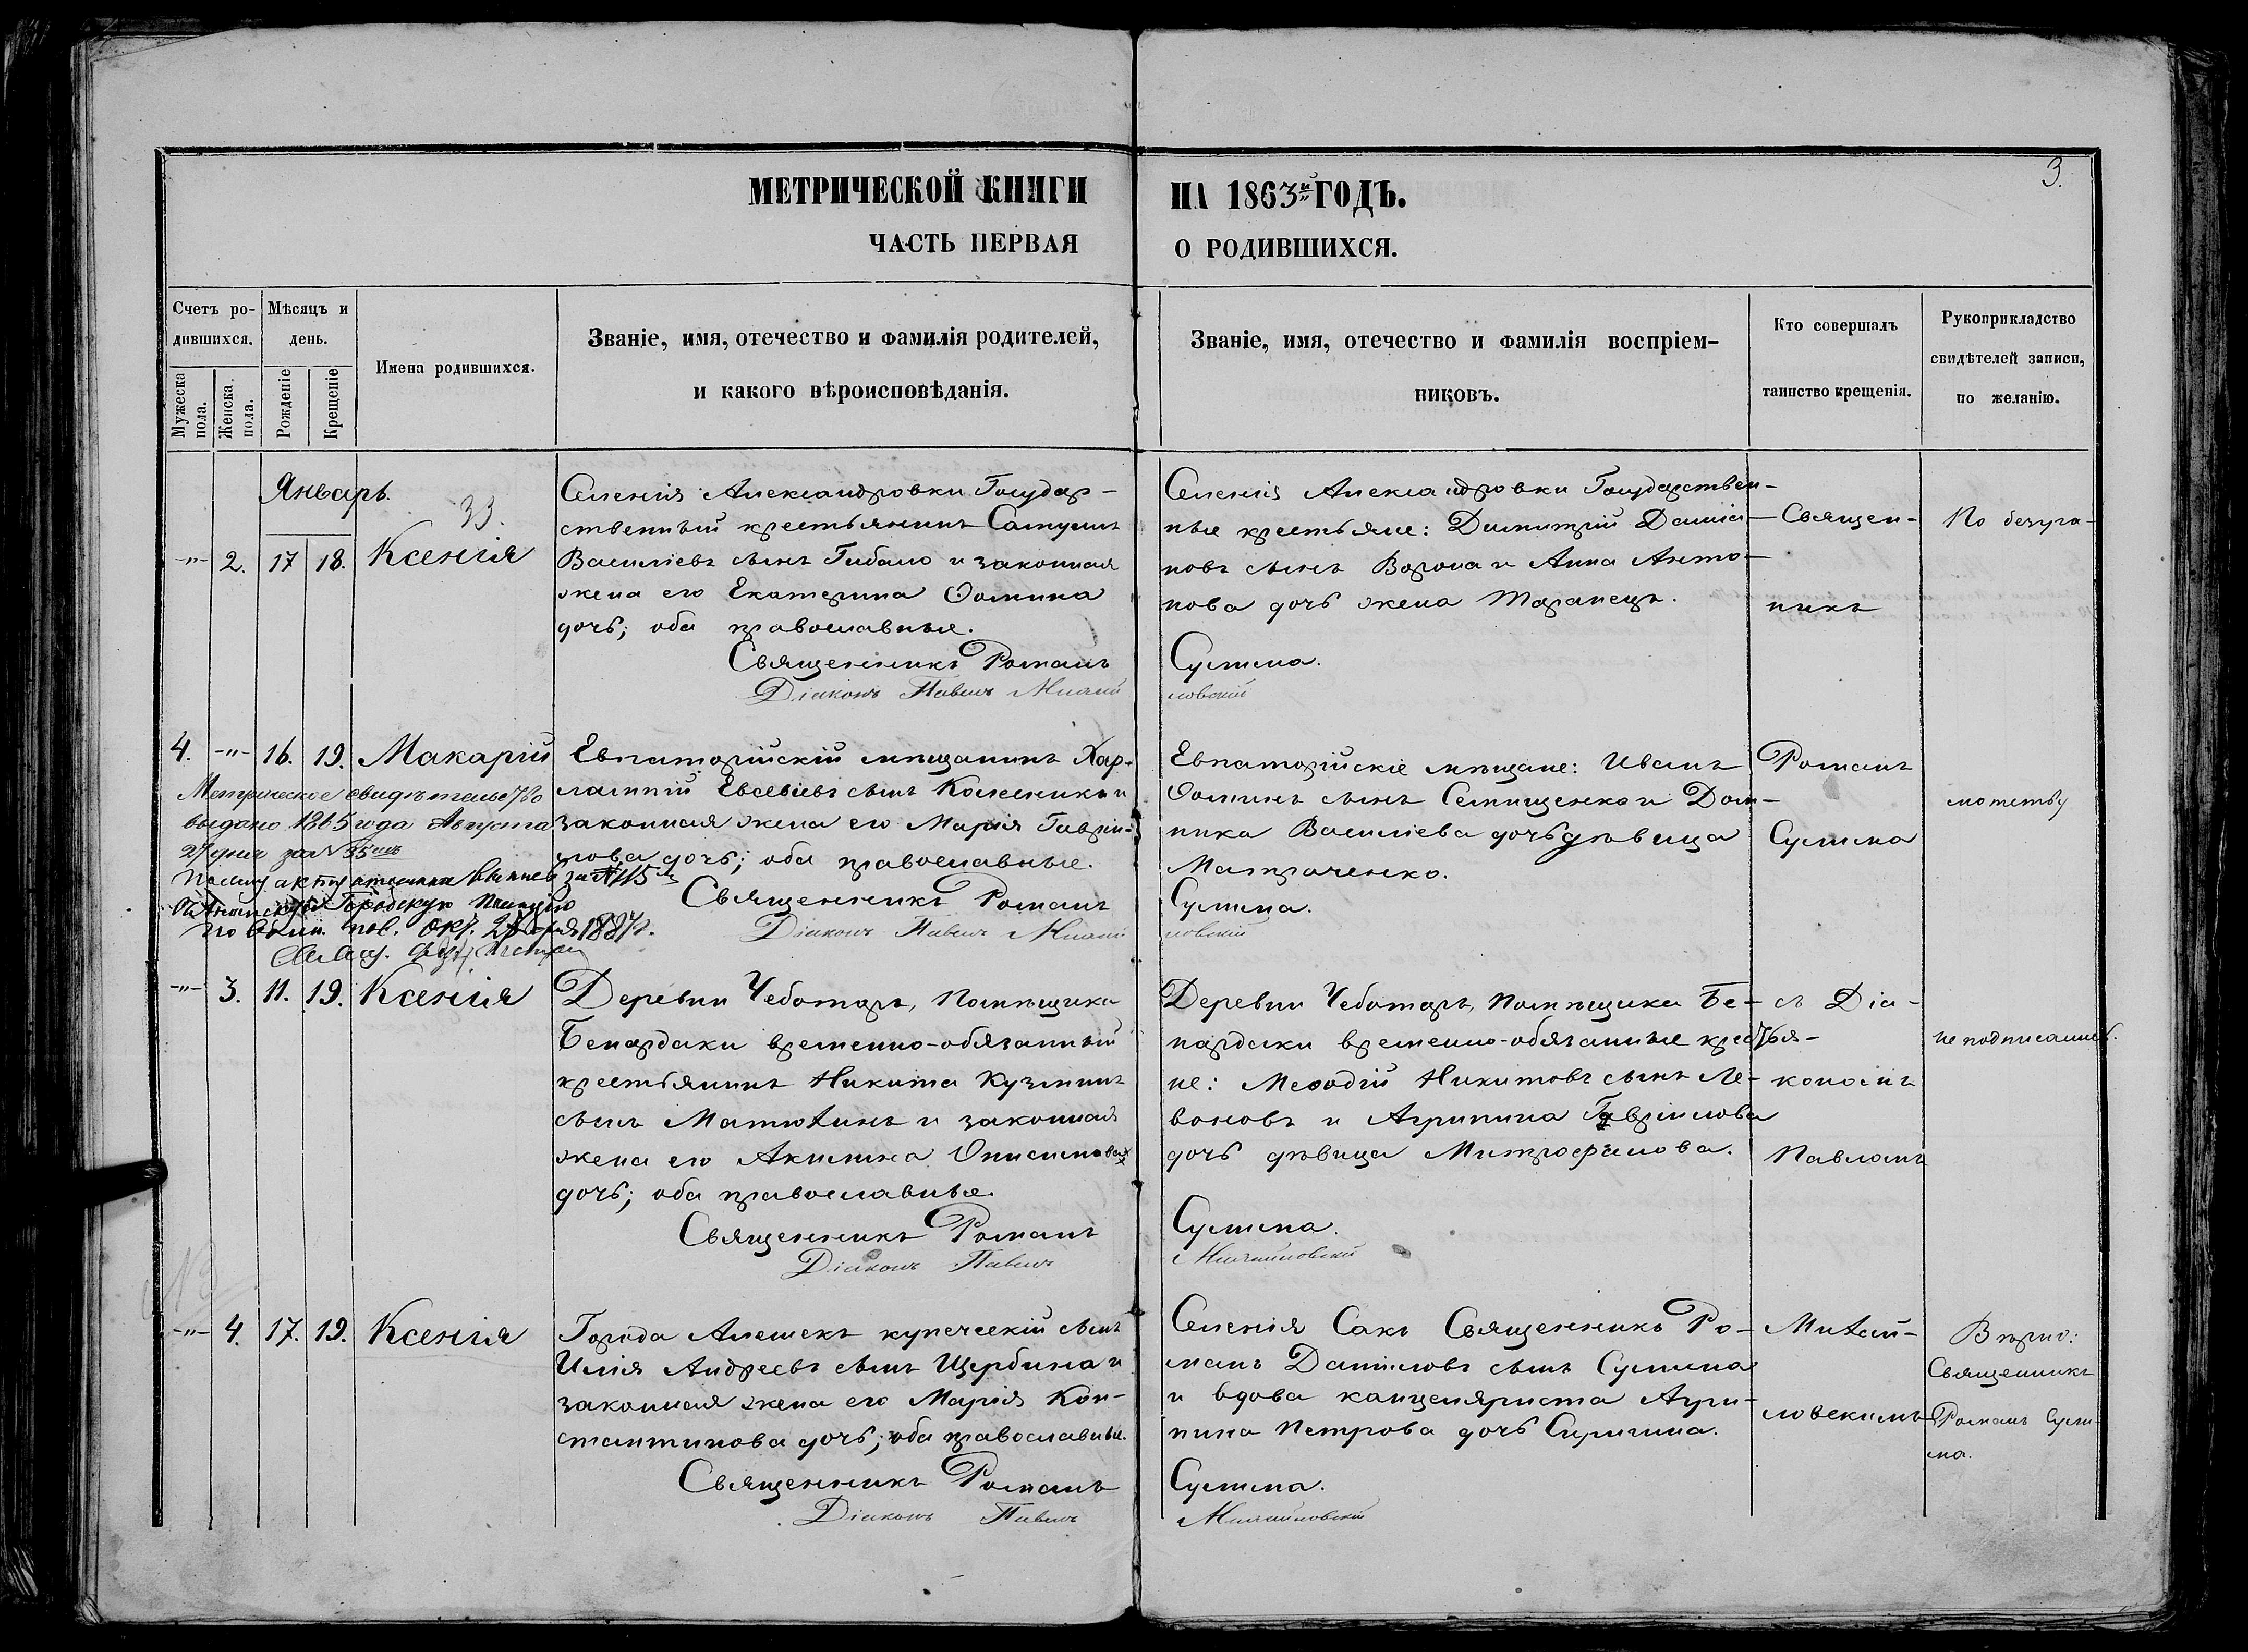 МЕТРИЧЕСКОЙ КНИГИ НА 1863й ГОДЪ.
3.
ЧАСТЬ ПЕРВАЯ О РОДИВШИХСЯ.
Счетъ ро-
дившихся.
Мужеска пола.
Женска пола.
Мѣсяцъ и
день.
Рожденіе
Крещеніе
Имена родившихся.
Званіе, имя, отечество и фамилія родителей,
и какого вѣроисповѣданія.
Званіе, имя, отечество и фамилія воспріем-
никовъ.
Кто совершалъ
таинство крещенія.
Рукоприкладство
свидѣтелей записи,
по желанію.
Январь.
33.
-"- 2. 17 18. Ксенія
Селенія Александровки Государ-
ственный крестьянинъ
Василіевъ сынъ Гибало и законная
жена его Екатерина Ѳомина
дочь; оба православные.
Священникъ Романъ
Діаконъ Павелъ Михай
Селенія Александровки Государствен-
ные крестьяне: Димитрій Даміа-
новъ сынъ Ворона и Анна Анто-
нова дочь жена Таранецъ.
Сулима.
ловскій
Священ-
никъ
По безгра-
4. -"- 16. 19. Макарій
Метрическое свидѣтельство
выдано 1865 года Августа
27 дня за № 35
Евпаторійскій мѣщанинъ Хар-
лампій Евсевіевъ сынъ Колесникъ и
законная жена его Марія Гаврі-
лова дочь; оба православные.
Священникъ Романъ
Діаконъ Павелъ Михай
Евпаторійскіе мѣщане: Иванъ
Ѳоминъ сынъ Семищенко и Дом-
ника Василіева дочь дѣвица
Матраченко.
Сулима.
ловскій
Романъ
Сулима
мотству
-"- 3. 11. 19. Ксенія
Деревни Чеботаръ, Помѣщика
Бенардаки временно-обязанный
крестьянинъ Никита Кузминъ
сынъ Матюхинъ и законная
жена его Акилина Онисимова
дочь; оба православные.
Священникъ Романъ
Діаконъ Павелъ
Деревни Чеботаръ, Помѣщика Бе-
нардаки временно-обязанные крестья-
не: Меѳодій Никитовъ сынъ Ле-
воновъ и Агрипина Гавріилова
дочь дѣвица Митрофанова.
Сулима.
Михайловскій
съ Діа-
кономъ
Павломъ
не подписались.
-"- 4. 17. 19. Ксенія
Города Алешекъ купеческій сынъ
Илія Андреевъ сынъ Щербина и
законная жена его Марія Кон-
стантинова дочь; оба православные.
Священникъ Романъ
Діаконъ Павелъ
Селенія Сакъ Священникъ Ро-
манъ Даніиловъ сынъ Сулима
и вдова канцеляриста Агри-
пина Петрова дочь
Сулима.
Михайловскій
Михай-
ловскимъ
Вѣрно:
Священникъ
Романъ Сули-
ма.